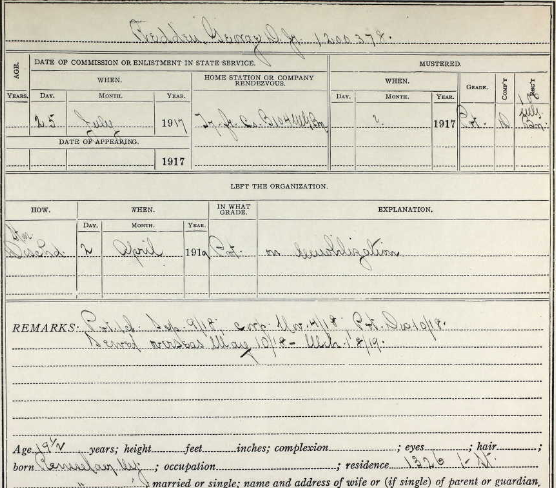 George D Jr. 1200378.
AGE. DATE OF COMMISSION OR ENLISTMENT IN STATE SERVICE. MUSTERED.
WHEN. HOME STATION OR COMPANY RENDEZVOUS. WHEN. GRADE. COMP'Y REG'T
YEARS. DAY. MONTH. YEAR. DAY. MONTH. YEAR.
25 July 1917 1917 Pvt. D
DATE OF APPEARING.
1917
LEFT THE ORGANIZATION.
HOW. WHEN. IN WHAT GRADE. EXPLANATION.
DAY. MONTH. YEAR.
Hon
Dischd 2 April 1919 Pvt. on demobilization
REMARKS: Sep. 9/18. Corp Nov. 4/18. Pvt. Dec 10/18.
Served overseas May 10/18 - Mch. 18/19.
Age 19 1/2 years; height feet inches; complexion ; eyes ; hair ;
born ; occupation ; residence 1326 1- St.
married or single; name and address of wife or (if single) of parent or guardian,